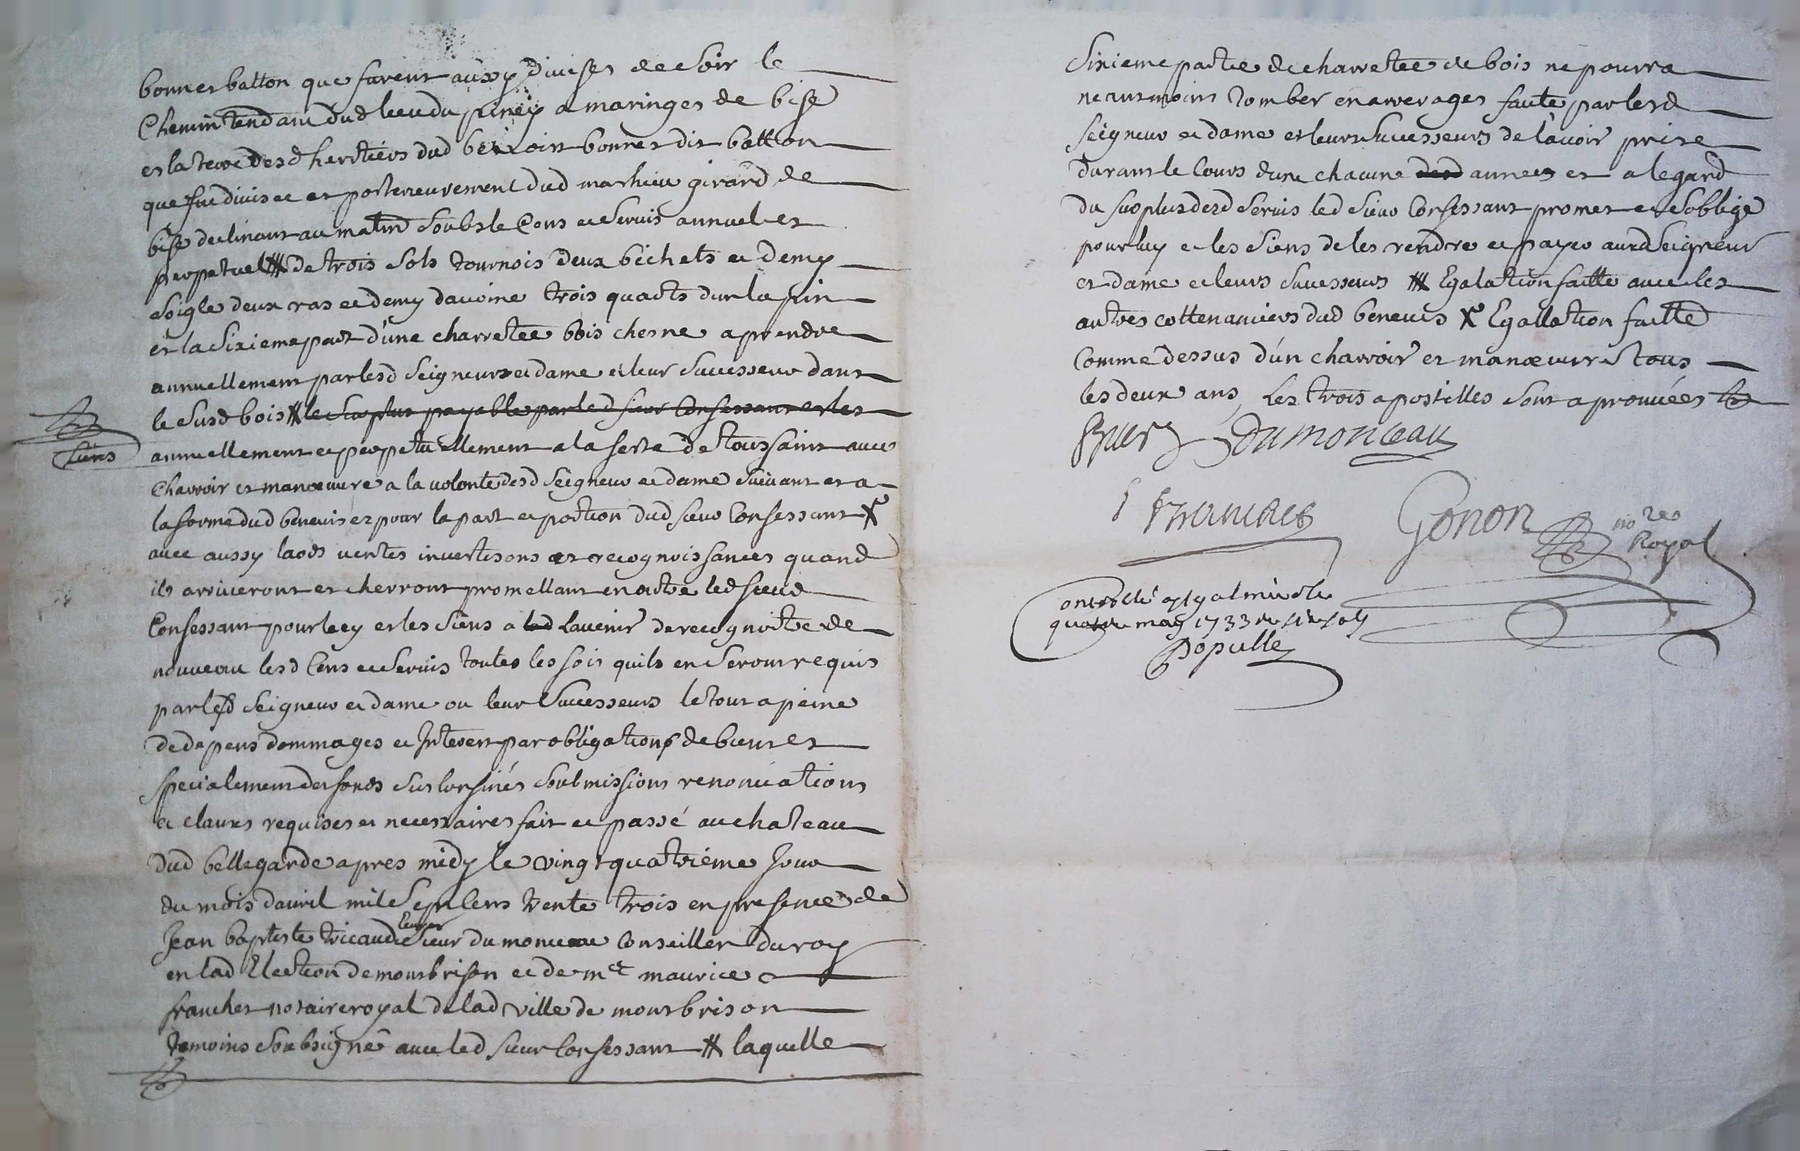 bonnes batton que furent aussy divisés de soir le
chemin tendant dud lieu du piney a maringes de bise
et la terre desd heritiers dud benoist bonnes dit batton
que fut divisée et posterieurement dud mathieu girard de
bise declinant au matin soubs le cens et servis annuel et
perpetuel # de trois sols tournois deux bichets et demy
seigle deux ras et demy davoine trois quarts dune lapin
et la sixieme part d'une charretee bois chesne a prendre
annuellement par lesd seigneurs et dame et leur successeur dans
le susd bois # le surplus payable par led sieur confessant et les
siens
annuellement et perpetuellement a la feste de toussaint avec
charroir et manœuvre a la volonte desd seigneur et dame suivant et a
la forme dud benevis et pour la part et portion dud sieur confessant X
avec aussy laods ventes invertisons et recognoissances quand
ils arriveront et cherront promettant en outre led sieur
confessant pour luy et les siens a lad lavenir de recognoitre de
nouveau lesd cens et servis toutes les fois quils en seront requis
par lesd seigneur et dame ou leur successeurs le tout a peine
de depens dommages et interest par obligations de biens et
specialement des fonds sus confinés soubmissions renonciations
et clauses requises et necessaires fait et passé au chateau
dud bellegarde apres midy le vingt quatrieme jour
du mois davril mil sept cens trente trois en presence de
Jean baptiste tricaud Ecuyer sieur du monceau conseiller du roy
en lad Election de montbrison et de mre maurice
franchet notaire royal de lad ville de montbrison
temoins soubsigné avec led sieur confessant # laquelle
sixieme partie de charretee de bois ne pourra
neantmoins tomber en arrerages faute par lesd
seigneur et dame et leurs successeurs de l'avoir prise
durant le cours dune chacune desd années et a legard
du surplus desd servis led sieur confessant promet et soblige
pour luy et les siens de les rendre et payer auxd seigneur
et dame et leurs successeurs # Egalation faitte avec les
autres cottenanciers dud benevis X Egallation faitte
comme dessus d'un charroir et manœuvre tous
les deux ans, les trois apostilles sont aprouvées
Dumonceau
Franchet Gonon nore Royal
Controllé a st galmier le
quatre may 1733
Populle